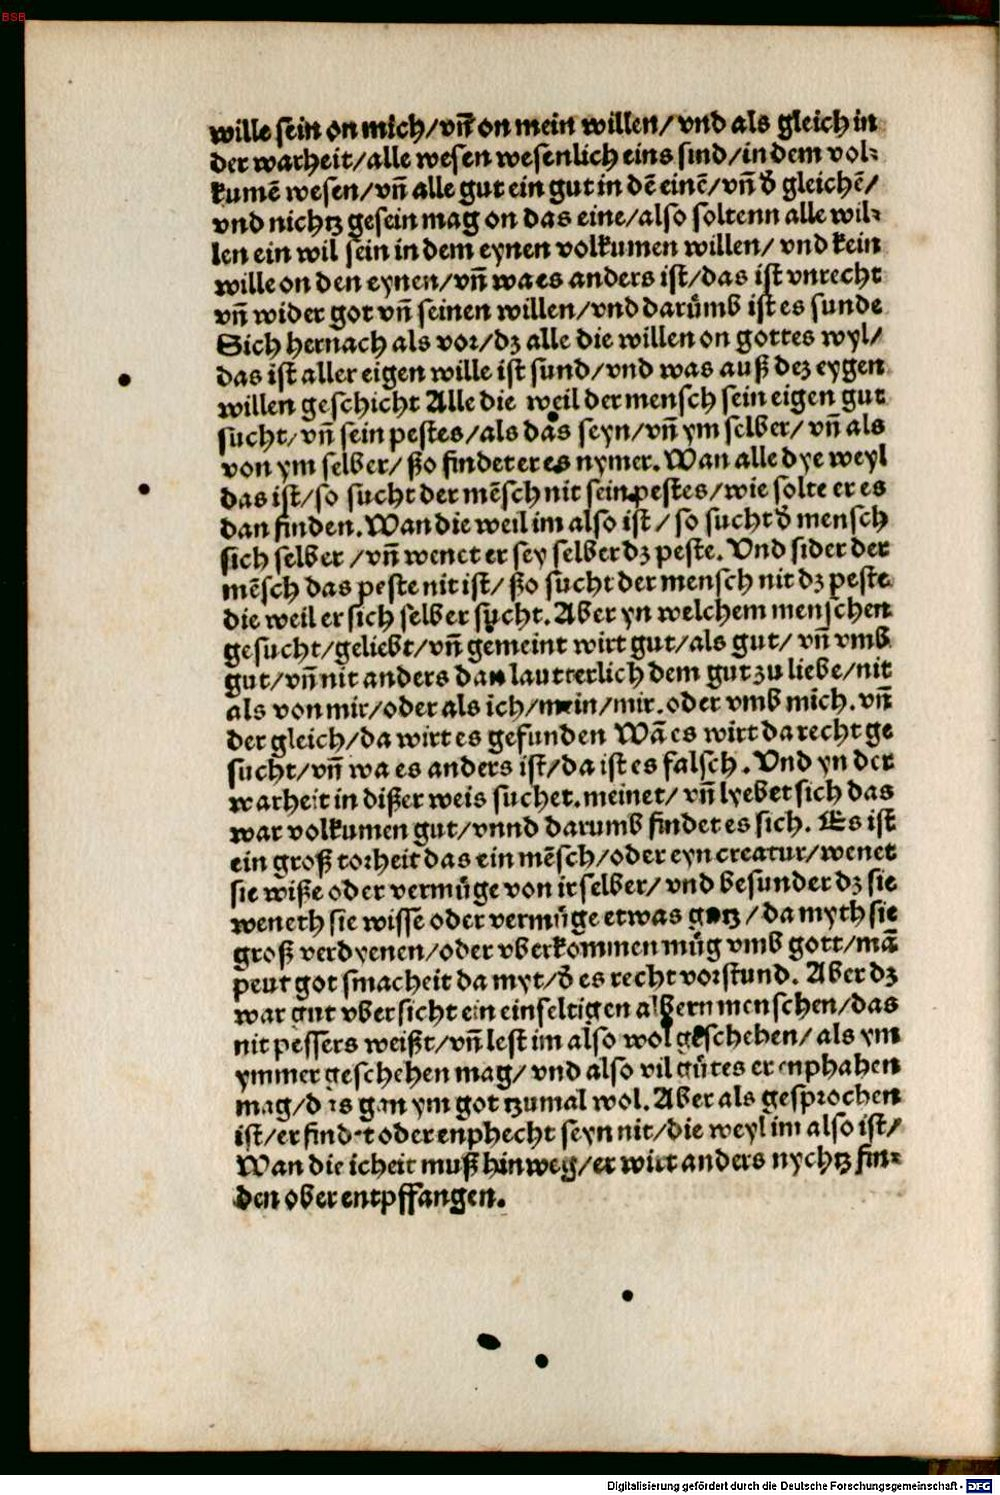 BSB
wille sein on mich/vn̄ on mein willen/vnd als gleich in
der warheit/alle wesen wesenlich eins sind/in dem vol⸗
kumē wesen/vn̄ alle gut ein gut in dē einē/vn̄ d̄ gleichē/
vnd nichtz gesein mag on das eine/also soltenn alle wil⸗
len ein wil sein in dem eynen volkumen willen/ vnd kein
wille on den eynen/vn̄ wa es anders ist/das ist vnrecht
vn̄ wider got vn̄ seinen willen/vnd darůmb ist es sunde
Sich hernach als vor/dz alle die willen on gottes wyl/
das ist aller eigen wille ist sund/vnd was auß dez eygen
willen geschicht Alle die weil der mensch sein eigen gut
sucht/vn̄ sein pestes/als das seyn/vn̄ ym selber/ vn̄ als
von ym selber/ ßo findet er es nymer. Wan alle dye weyl
das ist/so sucht der mēsch nit sein pestes/wie solte er es
dan finden. Wan die weil im also ist/ so sucht d̄ mensch
sich selber/vn̄ wenet er sey selber dz peste. Vnd sider der
mēsch das peste nit ist/ ßo sucht der mensch nit dz peste
die weil er sich selber sucht. Aber yn welchem menschen
gesucht/geliebt/vn̄ gemeint wirt gut/als gut/ vn̄ vmb
gut/vn̄ nit anders dan lautterlich dem gut zu liebe/nit
als von mir/oder als ich/mein/mir. oder vmb mich. vn̄
der gleich/da wirt es gefunden Wā es wirt da recht ge
sucht/vn̄ wa es anders ist/da ist es falsch. Vnd yn der
warheit in dißer weis suchet. meinet/ vn̄ lyebet sich das
war volkumen gut/vnnd darumb findet es sich. Es ist
ein groß torheit das ein mēsch/oder eyn creatur/wenet
sie wiße oder vermüge von ir selber/ vnd besunder dz sie
weneth sie wisse oder vermüge etwas gutz/ da myth sie
groß verdyenen/oder vberkommen müg vmb gott/mā
peut got smacheit da myt/d̄ es recht vorstund. Aber dz
war gut vbersicht ein einfeltigen albern menschen/das
nit pessers weißt/vn̄ lest im also wol geschehen/ als ym
ymmer geschehen mag/ vnd also vil gůtes er enphahen
mag/das gan ym got tzumal wol. Aber als gesprochen
ist/er findet oder enphecht seyn nit/die weyl im also ist/
Wan die icheit muß hinweg/er wirt anders nychtz fin⸗
den ober entpffangen.
Digitalisierung gefördert durch die Deutsche Forschungsgemeinschaft - DFG